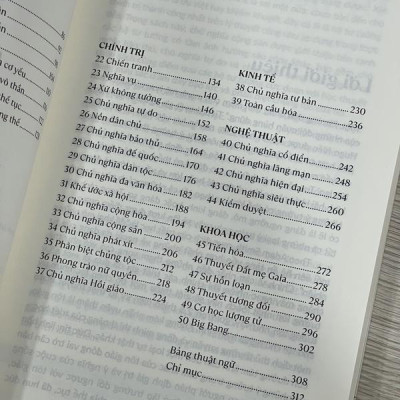 86
90
à cơ yếu
vô thần
hế tục
ng thể
CHÍNH TRỊ
22 Chiến tranh 134
23 Nghĩa vụ 140
24 Xứ không tưởng 146
25 Chủ nghĩa tự do 152
26 Nền dân chủ 158
27 Chủ nghĩa bảo thủ 164
28 Chủ nghĩa đế quốc 170
29 Chủ nghĩa dân tộc 176
30 Chủ nghĩa đa văn hóa 182
31 Khế ước xã hội 188
32 Chủ nghĩa cộng hòa 194
33 Chủ nghĩa cộng sản 200
34 Chủ nghĩa phát xít 206
35 Phân biệt chủng tộc 212
36 Phong trào nữ quyền 218
37 Chủ nghĩa Hồi giáo 224
KINH TẾ
38 Chủ nghĩa tư bản 230
39 Toàn cầu hóa 236
NGHỆ THUẬT
40 Chủ nghĩa cổ điển 242
41 Chủ nghĩa lãng mạn 248
42 Chủ nghĩa hiện đại 254
43 Chủ nghĩa siêu thực 260
44 Kiểm duyệt 266
KHOA HỌC
45 Tiến hóa 272
46 Thuyết Đất mẹ Gaia 278
47 Sự hỗn loạn 284
48 Thuyết tương đối 290
49 Cơ học lượng tử 296
50 Big Bang 302
Bảng thuật ngữ 308
Chỉ mục 312